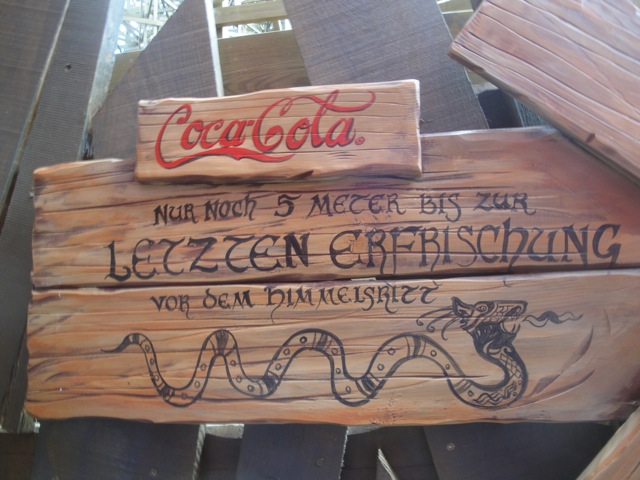 Coca-Cola®
NUR NOCH 5 METER BIS ZUR
LETZTEN ERFRISCHUNG
VOR DEM HIMMELSRITT